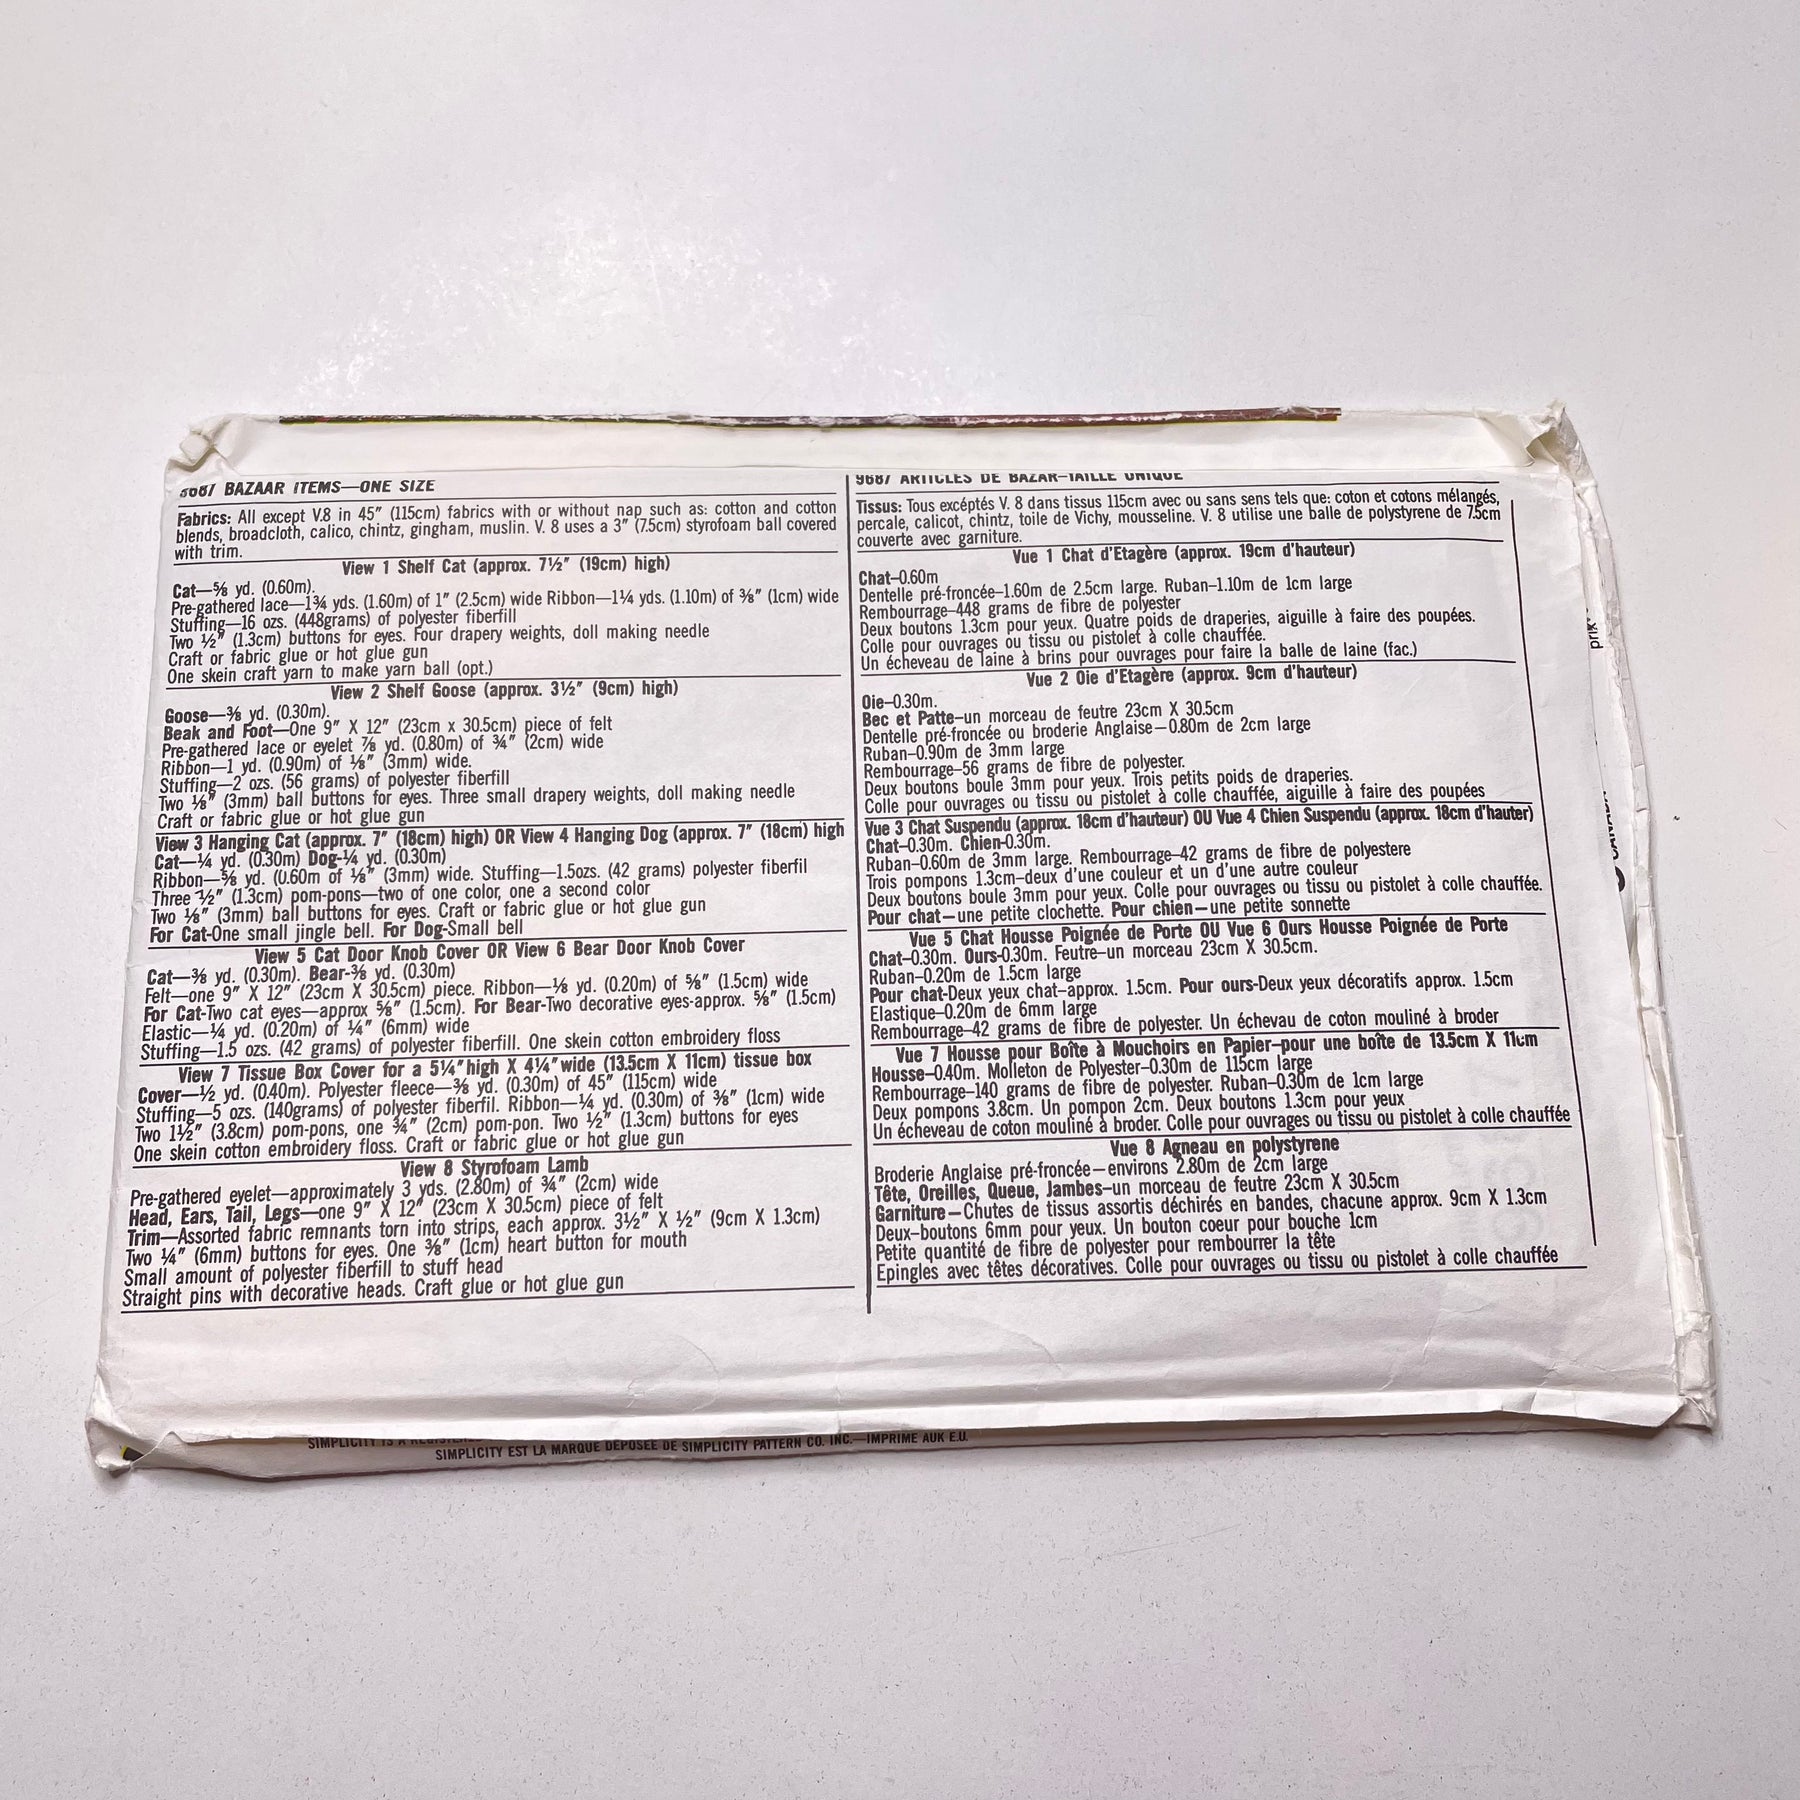 9687 BAZAAR ITEMS—ONE SIZE
Fabrics: All except V.8 in 45" (115cm) fabrics with or without nap such as: cotton and cotton
blends, broadcloth, calico, chintz, gingham, muslin. V. 8 uses a 3" (7.5cm) styrofoam ball covered
with trim.
View 1 Shelf Cat (approx. 7½" (19cm) high)
Cat—⅝ yd. (0.60m).
Pre-gathered lace—1¾ yds. (1.60m) of 1" (2.5cm) wide Ribbon—1¼ yds. (1.10m) of ⅜" (1cm) wide
Stuffing—16 ozs. (448grams) of polyester fiberfill
Two ½" (1.3cm) buttons for eyes. Four drapery weights, doll making needle
Craft or fabric glue or hot glue gun
One skein craft yarn to make yarn ball (opt.)
View 2 Shelf Goose (approx. 3½" (9cm) high)
Goose—⅜ yd. (0.30m).
Beak and Foot—One 9" X 12" (23cm x 30.5cm) piece of felt
Pre-gathered lace or eyelet ⅞ yd. (0.80m) of ¾" (2cm) wide
Ribbon—1 yd. (0.90m) of ⅛" (3mm) wide.
Stuffing—2 ozs. (56 grams) of polyester fiberfill
Two ⅛" (3mm) ball buttons for eyes. Three small drapery weights, doll making needle
Craft or fabric glue or hot glue gun
View 3 Hanging Cat (approx. 7" (18cm) high) OR View 4 Hanging Dog (approx. 7" (18cm) high
Cat—¼ yd. (0.30m) Dog-¼ yd. (0.30m)
Ribbon—⅝ yd. (0.60m of ⅛" (3mm) wide. Stuffing—1.5ozs. (42 grams) polyester fiberfil
Three ½" (1.3cm) pom-pons—two of one color, one a second color
Two ⅛" (3mm) ball buttons for eyes. Craft or fabric glue or hot glue gun
For Cat-One small jingle bell. For Dog-Small bell
View 5 Cat Door Knob Cover OR View 6 Bear Door Knob Cover
Cat—⅜ yd. (0.30m). Bear-⅜ yd. (0.30m)
Felt—one 9" X 12" (23cm X 30.5cm) piece. Ribbon—⅛ yd. (0.20m) of ⅝" (1.5cm) wide
For Cat-Two cat eyes—approx ⅝" (1.5cm). For Bear-Two decorative eyes-approx. ⅝" (1.5cm)
Elastic—¼ yd. (0.20m) of ¼" (6mm) wide
Stuffing—1.5 ozs. (42 grams) of polyester fiberfill. One skein cotton embroidery floss
View 7 Tissue Box Cover for a 5¼" high X 4¼" wide (13.5cm X 11cm) tissue box
Cover—½ yd. (0.40m). Polyester fleece—⅜ yd. (0.30m) of 45" (115cm) wide
Stuffing—5 ozs. (140grams) of polyester fiberfil. Ribbon—¼ yd. (0.30m) of ⅜" (1cm) wide
Two 1½" (3.8cm) pom-pons, one ¾" (2cm) pom-pon. Two ½" (1.3cm) buttons for eyes
One skein cotton embroidery floss. Craft or fabric glue or hot glue gun
View 8 Styrofoam Lamb
Pre-gathered eyelet—approximately 3 yds. (2.80m) of ¾" (2cm) wide
Head, Ears, Tail, Legs—one 9" X 12" (23cm X 30.5cm) piece of felt
Trim—Assorted fabric remnants torn into strips, each approx. 3½" X ½" (9cm X 1.3cm)
Two ¼" (6mm) buttons for eyes. One ⅜" (1cm) heart button for mouth
Small amount of polyester fiberfill to stuff head
Straight pins with decorative heads. Craft glue or hot glue gun
9687 ARTICLES DE BAZAR-TAILLE UNIQUE
Tissus: Tous excéptés V. 8 dans tissus 115cm avec ou sans sens tels que: coton et cotons mélangés,
percale, calicot, chintz, toile de Vichy, mousseline. V. 8 utilise une balle de polystyrene de 7.5cm
couverte avec garniture.
Vue 1 Chat d'Etagère (approx. 19cm d'hauteur)
Chat–0.60m
Dentelle pré-froncée–1.60m de 2.5cm large. Ruban–1.10m de 1cm large
Rembourrage–448 grams de fibre de polyester
Deux boutons 1.3cm pour yeux. Quatre poids de draperies, aiguille à faire des poupées.
Colle pour ouvrages ou tissu ou pistolet à colle chauffée.
Un écheveau de laine à brins pour ouvrages pour faire la balle de laine (fac.)
Vue 2 Oie d'Etagère (approx. 9cm d'hauteur)
Oie–0.30m.
Bec et Patte–un morceau de feutre 23cm X 30.5cm
Dentelle pré-froncée ou broderie Anglaise–0.80m de 2cm large
Ruban–0.90m de 3mm large
Rembourrage–56 grams de fibre de polyester.
Deux boutons boule 3mm pour yeux. Trois petits poids de draperies.
Colle pour ouvrages ou tissu ou pistolet à colle chauffée, aiguille à faire des poupées
Vue 3 Chat Suspendu (approx. 18cm d'hauteur) OU Vue 4 Chien Suspendu (approx. 18cm d'hauter)
Chat–0.30m. Chien–0.30m.
Ruban–0.60m de 3mm large. Rembourrage–42 grams de fibre de polyestere
Trois pompons 1.3cm–deux d'une couleur et un d'une autre couleur
Deux boutons boule 3mm pour yeux. Colle pour ouvrages ou tissu ou pistolet à colle chauffée.
Pour chat—une petite clochette. Pour chien—une petite sonnette
Vue 5 Chat Housse Poignée de Porte OU Vue 6 Ours Housse Poignée de Porte
Chat–0.30m. Ours-0.30m. Feutre–un morceau 23cm X 30.5cm.
Ruban–0.20m de 1.5cm large
Pour chat-Deux yeux chat–approx. 1.5cm. Pour ours-Deux yeux décoratifs approx. 1.5cm
Elastique–0.20m de 6mm large
Rembourrage–42 grams de fibre de polyester. Un échevau de coton mouliné à broder
Vue 7 Housse pour Boîte à Mouchoirs en Papier–pour une boîte de 13.5cm X 11cm
Housse–0.40m. Molleton de Polyester–0.30m de 115cm large
Rembourrage–140 grams de fibre de polyester. Ruban–0.30m de 1cm large
Deux pompons 3.8cm. Un pompon 2cm. Deux boutons 1.3cm pour yeux
Un écheveau de coton mouliné à broder. Colle pour ouvrages ou tissu ou pistolet à colle chauffée
Vue 8 Agneau en polystyrene
Broderie Anglaise pré-froncée—environs 2.80m de 2cm large
Tête, Oreilles, Queue, Jambes–un morceau de feutre 23cm X 30.5cm
Garniture—Chutes de tissus assortis déchirés en bandes, chacune approx. 9cm X 1.3cm
Deux–boutons 6mm pour yeux. Un bouton coeur pour bouche 1cm
Petite quantité de fibre de polyester pour rembourrer la tête
Epingles avec têtes décoratives. Colle pour ouvrages ou tissu ou pistolet à colle chauffée
prix
CANADA
SIMPLICITY IS A REGISTERED
SIMPLICITY EST LA MARQUE DEPOSEE DE SIMPLICITY PATTERN CO. INC.—IMPRIME AUK E.U.